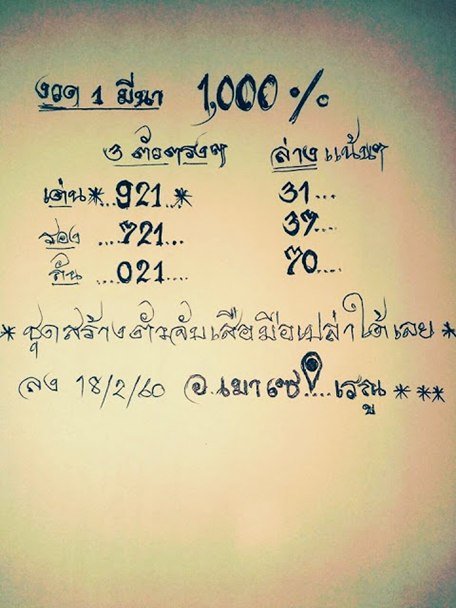 งวด 1 มีนา 1,000 %
3 ตัวตรงๆ ล่าง แน่นๆ
เด่น * ..921.. * 31...
รอง ...721... 37...
กัน ...021... 70....
* ชุดสร้างตัวจับเสือมือเปล่าได้เลย *
ลง 18/2/60 อ..เมาเซ.....เรณู * **